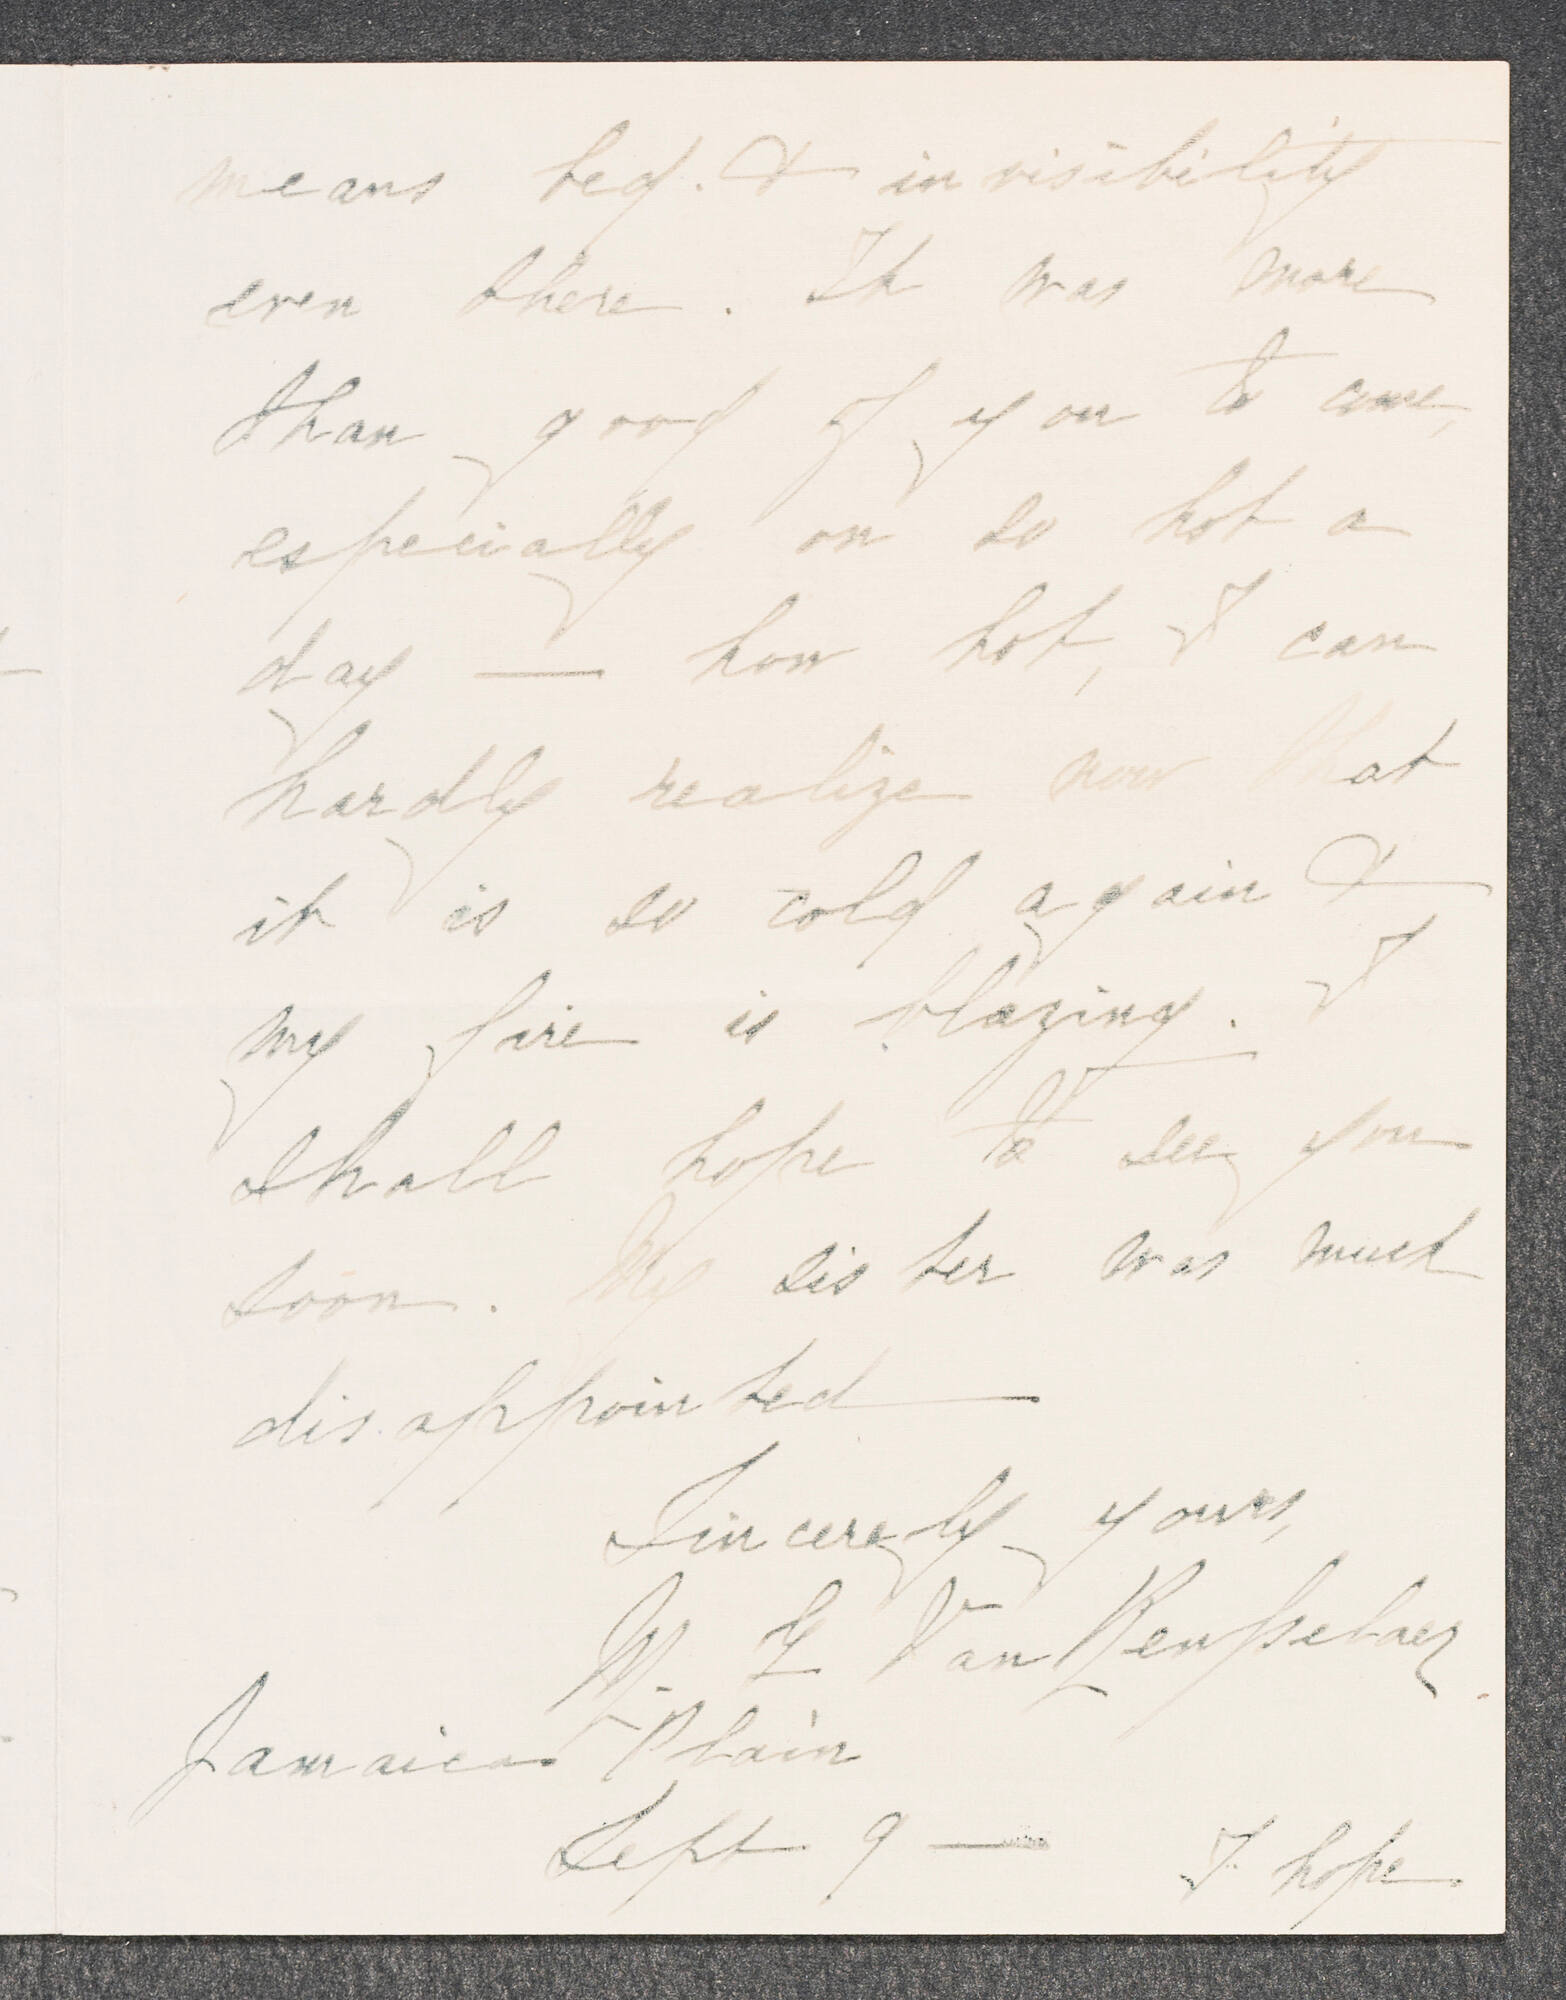 means bed. & invisibility
even there. It was more
than good of you to come,
especially on so hot a
day — how hot, I can
hardly realize now that
it is so cold again &
my fire is blazing. I
shall hope to see you
soon. My sister was much
disappointed —
Sincerely yours,
M. G. Van Rensselaer.
Jamaica Plain
Sept 9 —
I hope